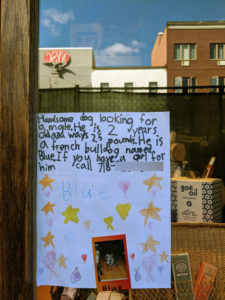 Handsome dog looking for
a mate. He is 2 years
Old and ways 25 pounds. He is
a french bulldog named
Blue. If you have a girl for
him call 718-
Blue
goe
oil
BLUE